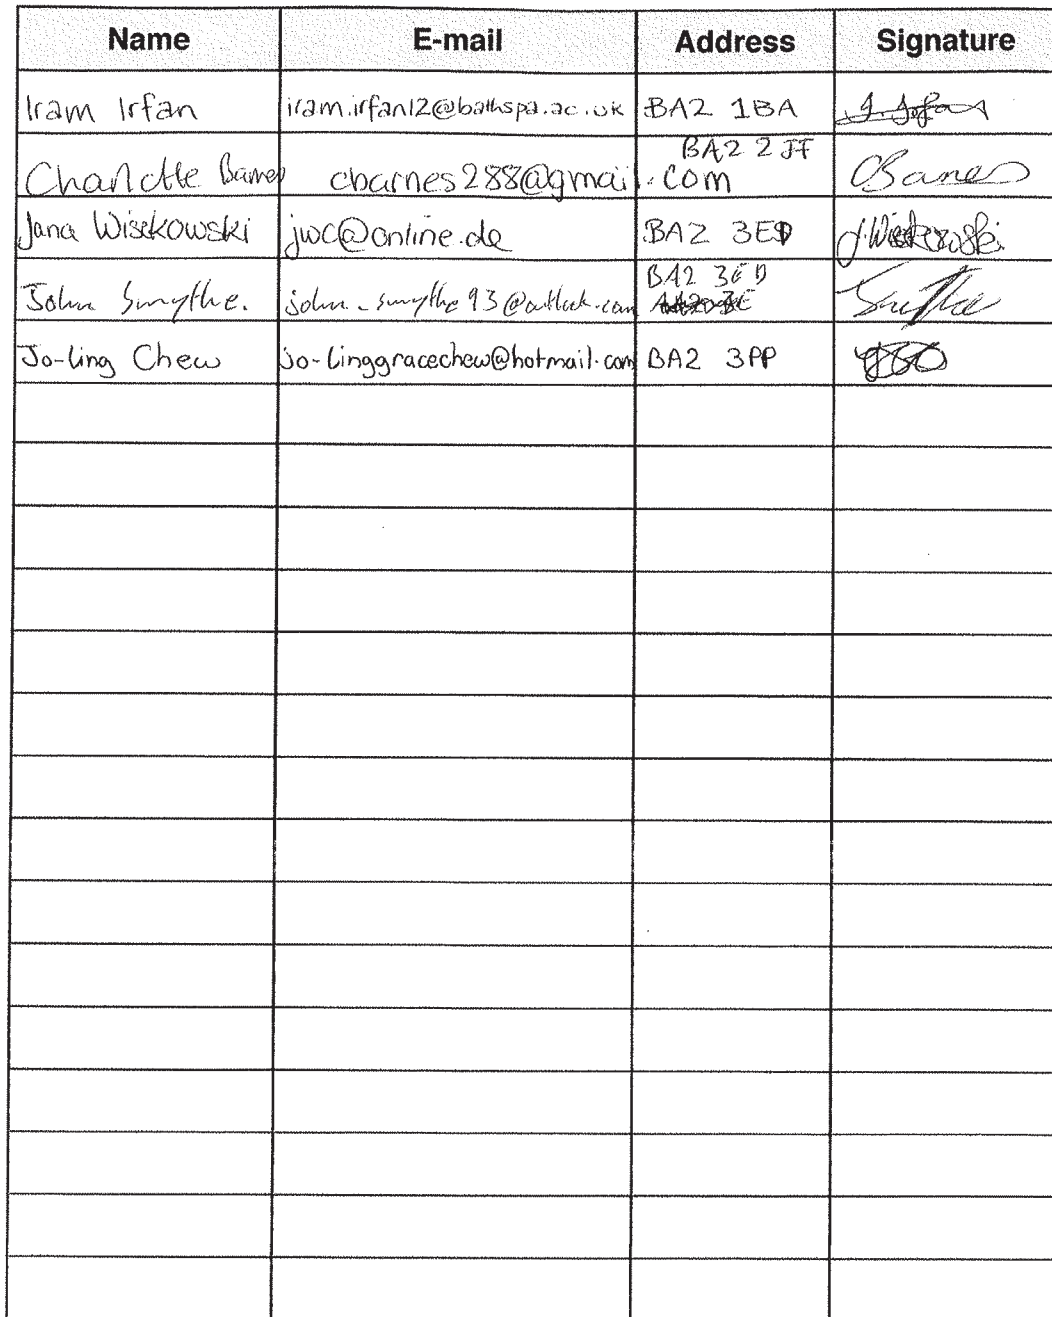 Name E-mail Address Signature
Iram Irfan iram.irfan12@bathspa.ac.uk BA2 1BA I. Irfan
BA2 2JF
Charlotte Barnes cbarnes288@gmail.com CBarnes
Jana Wisckowski jwc@online.de BA2 3ED J.Wisckowski
BA2 3ED
John Smythe. john_smythe93@outlook.com Smythe
Jo-Ling Chew jo-linggracechew@hotmail.com BA2 3PP